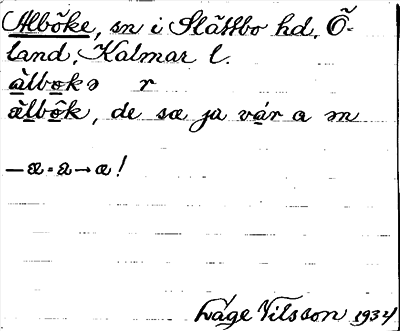 Alböke, sn i Slättbo hd, Ö-
land, Kalmar l.
àlbo̱kə r
æ̀lbô̱k, de sæ ja vár a m
– æ = a → æ!
Låge Nilsson 1934